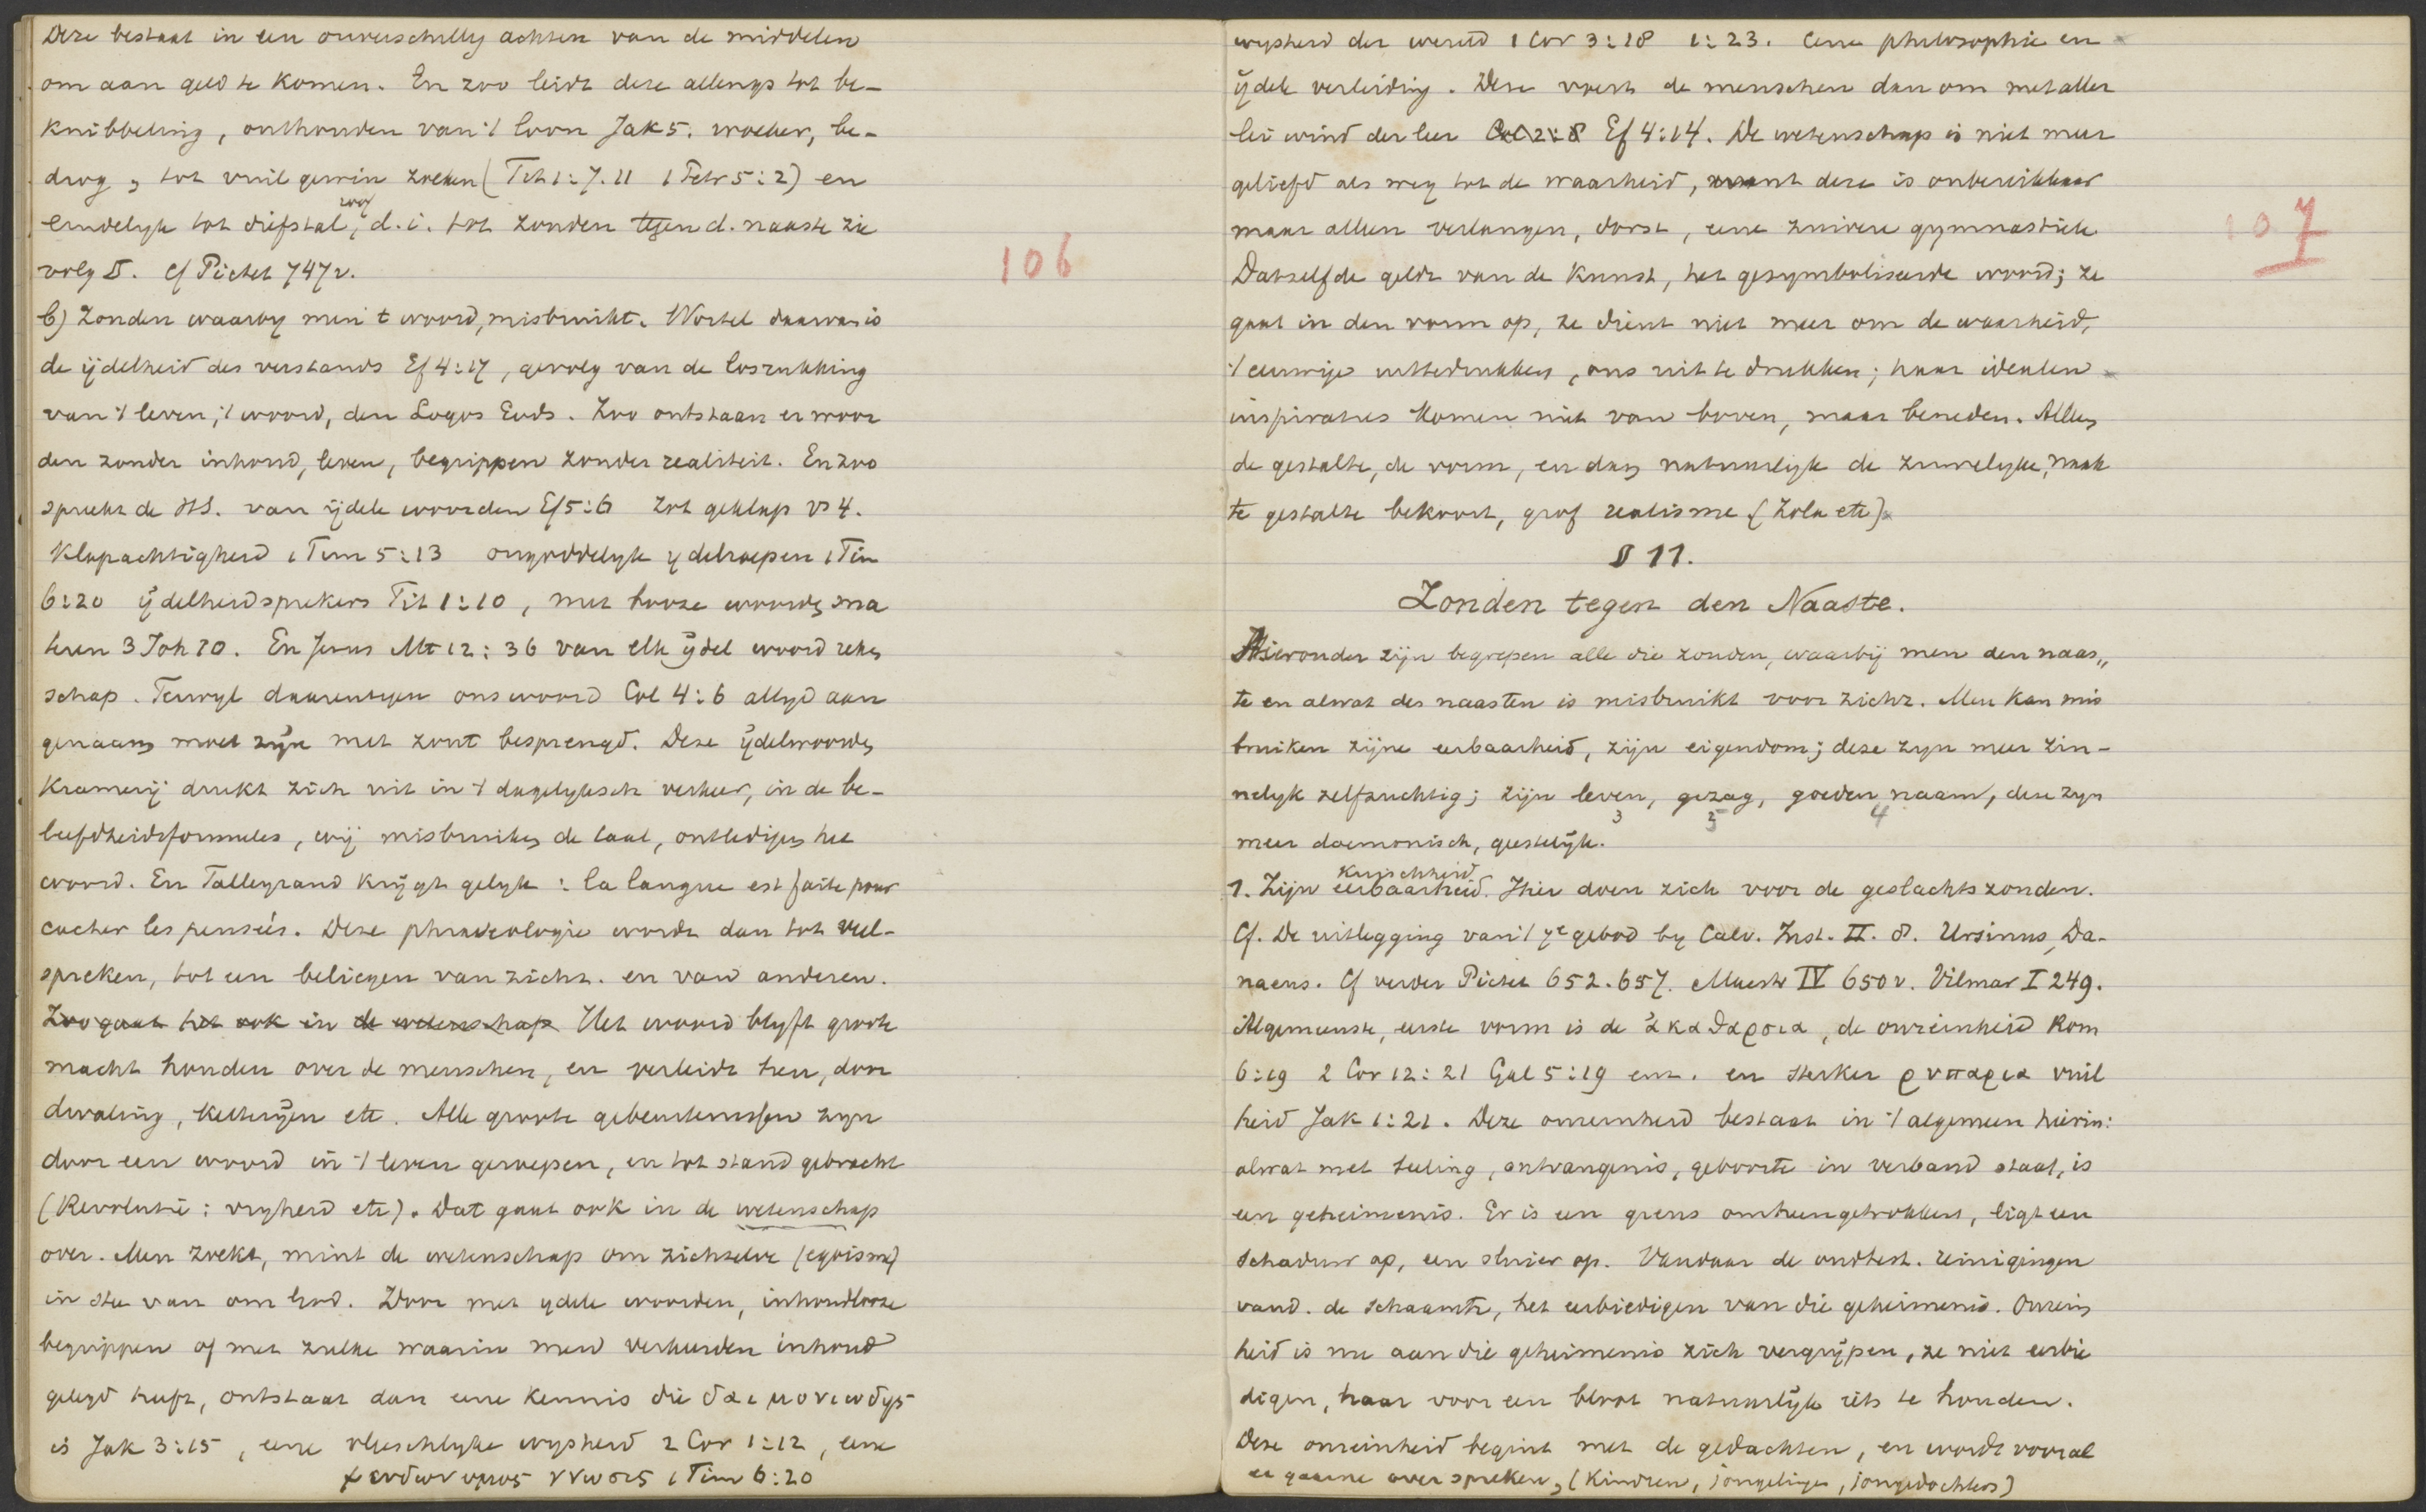 Deze bestaat in een onverschillig achten van de middelen
om aan geld te komen. En zoo leidt deze allengs tot be-
knibbeling, onthouden van 't loon Jak 5. woeker, be-
drog, tot vuil gewin zoeken (Tit 1:7.11 1 Petr 5:2) en
eindelyk tot diefstal, d.i. tot zonden tegen d. naaste zie
volg §. cf Pictet 747v.
106
b) Zonden waarby men 't woord, misbruikt. Wortel daarvan is
de ijdelheid des verstands Ef 4:17, gevolg van de losrukking
van 't leven, 't woord, den Logos Gods. Zoo ontstaan er woor
den zonder inhoud, leven, begrippen zonder realiteit. En zoo
spreekt de HS. van ijdele woorden Ef 5:6 zot geklap vs 4.
Klapachtigheid 1 Tim 5:13 ongoddelyk ydelroepen 1 Tim
6:20 ijdelheidsprekers Tit 1:10, met booze woorden sna
teren 3 Joh 10. En Jezus Mt 12:36 van elk ijdel woord reken
schap. Terwyl daarentegen ons woord Col 4:6 altyd aan
genaam moet zijn met zout besprengd. Deze ijdelwoorden
kramerij drukt zich uit in 't dagelyksch verkeer, in de be-
leefdheidsformules, wij misbruiken de taal, ontledigen het
woord. En Talleyrand krijgt gelyk: la langue est faite pour
cacher les pensées. Deze phraseologie wordt dan tot veel-
spreken, tot een beliegen van zichz. en van anderen.
Zoo gaat het ook in de wetenschap Het woord blyft groote
macht houden over de menschen, en verleidt hen, door
dwaling, ketterijen etc. Alle groote gebeurtenissen zyn
door een woord in 't leven geroepen, en tot stand gebracht
(Revolutie: vryheid etc). Dat gaat ook in de wetenschap
over. Men zoekt, mint de wetenschap om zichzelve (egoisme)
in stee van om God. Door met ydele woorden, inhoudlooze
begrippen of met zulke waarin men verkeerden inhoud
gelegd heeft, ontstaat dan eene kennis die δαιμονιωδης
is Jak 3:15, eene vleeschlyke wysheid 2 Cor 1:12, eene
ψευδωνυμος γνωσις 1 Tim 6:20
wysheid der wereld 1 Cor 3:18 1:23. Eene philosophie en
ijdele verleiding. Deze voert de menschen dan om met aller
lei wind der leer Col 2:8 Ef 4:14. De wetenschap is niet meer
geliefd als weg tot de waarheid, want deze is onbereikbaar
maar alleen verlangen, dorst, eene zuivere gymnastiek
107
Datzelfde geldt van de Kunst, het gesymboliseerde woord; ze
gaat in den vorm op, ze dient niet meer om de waarheid,
't eeuwige uittedrukken, ons uit te drukken; haar idealen
inspiraties komen niet van boven, maar beneden. Alleen
de gestalte, de vorm, en dan natuurlijk de zinnelyke, naak
te gestalte bekoort, grof realisme (Zola etc)
§ 11.
Zonden tegen den Naaste.
Hieronder zijn begrepen alle die zonden, waarbij men den naas„
te en alwat des naasten is misbruikt voor zichz. Men kan mis
bruiken zijne eerbaarheid, zijn eigendom; deze zyn meer zin-
nelyk zelfzuchtig; zijn leven, gezag, goeden naam, deze zyn
3 2 5 4
meer daemonisch, geestelijk.
kuischheid
1. Zijn eerbaarheid. Hier doen zich voor de geslachtszonden.
Cf. De uitlegging van 't 7e gebod by Calv. Inst. II. 8. Ursinus, Da-
naeus. Cf verder Pictet 652.657. Maestr IV 650v. Vilmar I 249.
Algemeenste, eerste vorm is de ἀκαθαρσια, de onreinheid Rom
6:19 2 Cor 12:21 Gal 5:19 enz. en sterker ρυπαρια vuil
heid Jak 1:21. Deze onreinheid bestaat in 't algemeen hierin:
alwat met teeling, ontvangenis, geboorte in verband staat, is
een geheimenis. Er is een grens omheengetrokken, ligt een
schaduw op, een sluier op. Vandaar de oudtest. reinigingen
vand. de schaamte, het eerbiedigen van die geheimenis. Onrein
heid is nu aan die geheimenis zich vergrijpen, ze niet eerbie
digen, haar voor een bloot natuurlijk iets te houden.
Deze onreinheid begint met de gedachten, en wordt vooral
er gaarne over spreken, (kinderen, jongelingen, jongedochters)